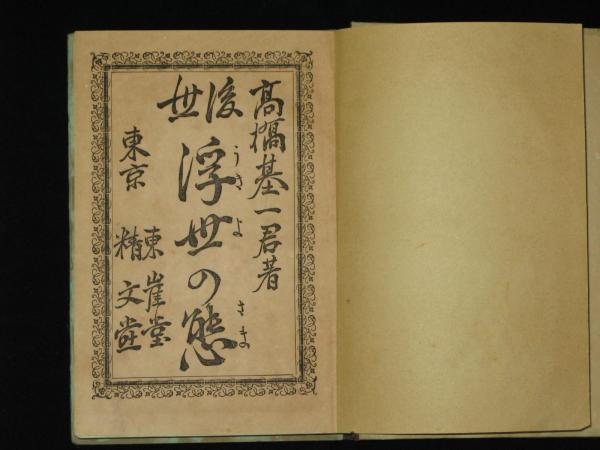 高橋基一君著
後世
浮世の態
うきよ
さま
東京
東崖堂
精文堂